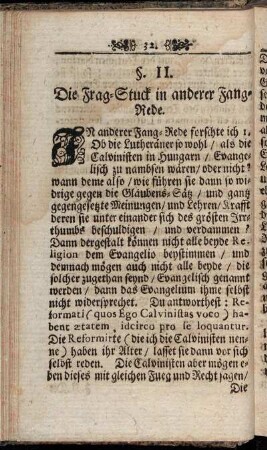 32.
§. II.
Die Frag-Stuck in anderer Fang-
Rede.
IN anderer Fang-Rede forschte ich 1.
Ob die Lutheraner so wohl / als die
Calvinisten in Hungarn / Evange-
lisch zu nambsen wären / oder nicht?
wann deme also / wie führen sie dann so wi-
drige gegen die Glaubens-Sätz / und gantz
gegengesetzte Meinungen / und Lehren / Krafft
deren sie unter einander sich des grösten Irr-
thumbs beschuldigen / und verdammen?
Dann dergestalt können nicht alle beyde Re-
ligion dem Evangelio beystimmen / und
demnach mögen auch nicht alle beyde / die
solcher zugethan seynd / Evangelisch genannt
werden / dann das Evangelium ihme selbst
nicht widersprichet. Du antworthest: Re-
formati (quos Ego Calvinistas voco) ha-
bent ætatem, idcirco pro se loquantur.
Die Reformirte (die ich die Calvinisten nen-
ne) haben ihr Alter / lasset sie dann vor sich
selbst reden. Die Calvinisten aber mögen e-
ben dieses mit gleichen Fueg und Recht sagen /
Die